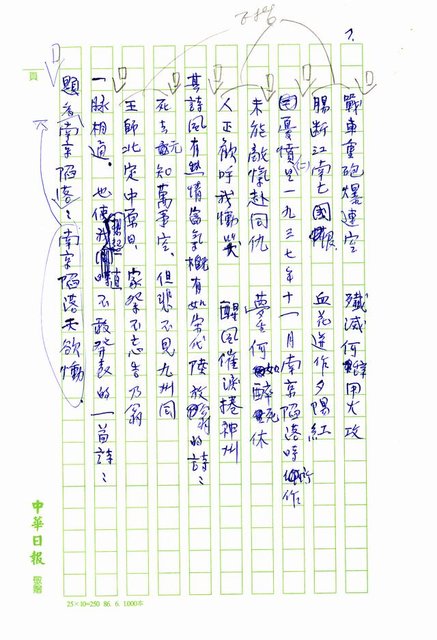 1.
戰車重砲爆連空 殲滅何辭用火攻
腸斷江南亡國恨 血花送作夕陽紅
(二)憂憤是一九三七年十一月南京陷落時所作
未能敵愾赴同仇 夢 何如醉死休
人正歡呼我慟哭 醒風催淚捲神州
其詩風有熱情富氣概有如宋代陸放翁的詩：
死去元知萬事空，但悲不見九州同
王師北定中原日，家祭不忘告乃翁
一脈相通。也使我想起 不敢發表的一首詩：
題為南京陷落：南京陷落天欲慟，
頁
中華日報 敬贈
25×10=250 86. 6. 1000本